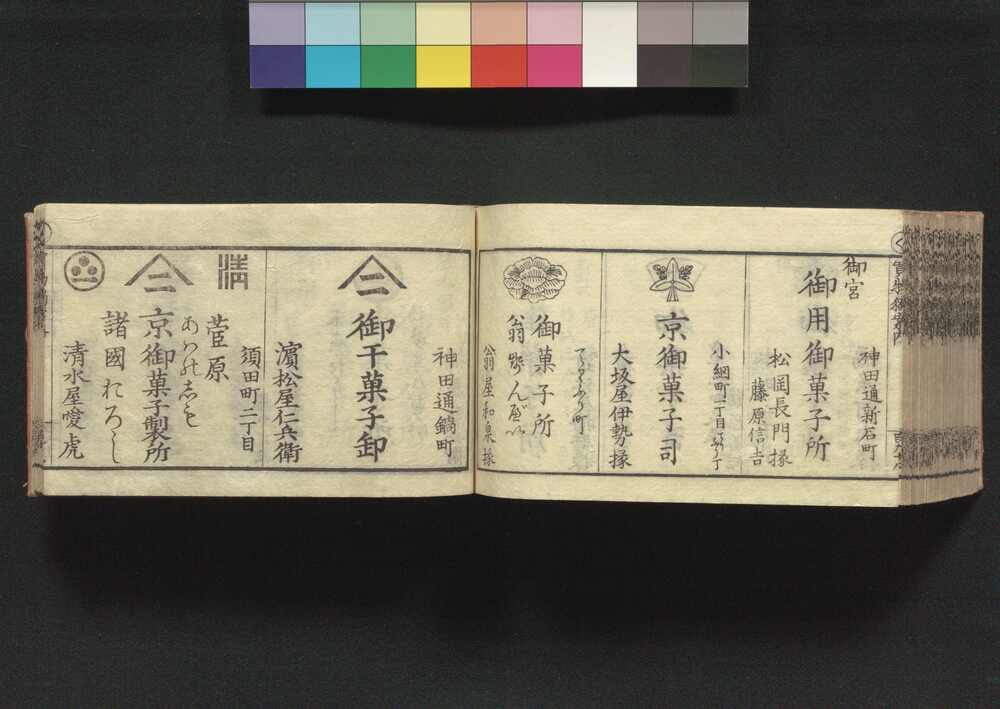 御宮
神田通新石町
御用御菓子所
松岡長門掾
藤原信吉
小網町二丁目
京御菓子司
大坂屋伊勢掾
てりふり町
御菓子所
翁せんべい
翁屋和泉掾
神田通鍋町
御干菓子卸
濱松屋仁兵衛
清
須田町二丁目
菅原
京御菓子製所
諸國おろし
清水屋愛虎